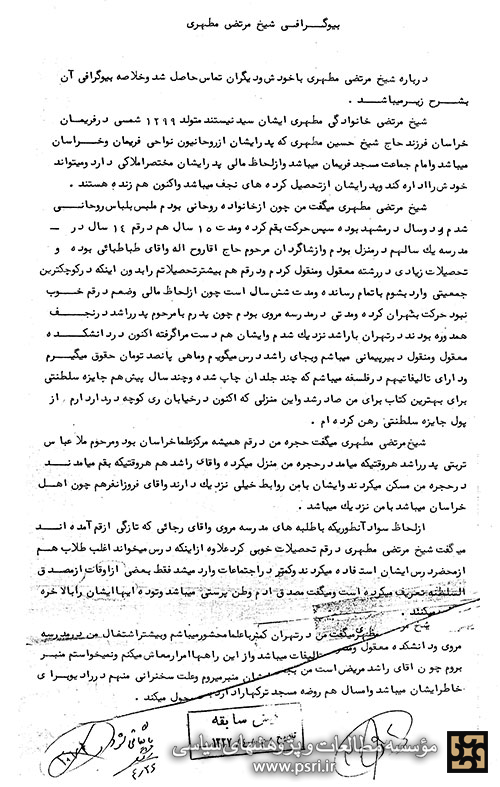 بیوگـرافـی شیخ مرتضی مطهری
درباره شیخ مرتضی مطهری باخودش ودیگران تماس حاصل شد وخلاصه بیوگرافی آن
بشـرح زیـرمیباشـد .
شیخ مرتضی خانوادگی مطهری ایشان سید نیستند متولد ۱۲۹۹ شمسی درفریمان
خراسان فرزند حاج شیخ حسین مطهری که پدرایشان ازروحانیون نواحی فریمان وخـراسان
میباشد وامام جماعت مسجد فریمان میباشد وازلحاظ مالی پدرایشان مختصراملاکی دارد ومیتواند
خودش رااداره کند وپدرایشان ازتحصیل کرده های نجف میباشد واکنون هم زنده هستند .
شیخ مرتضی مطهری میگفت من چون ازخانواده روحانی بودم ملبس بلباس روحانـی
شدم ودوسال درمشهد بوده سپس حرکت بقم کرده ومدت ۱۵ سال هم درقم ۱۴ سال در
مدرسه یک سالهم درمنزل بودم وازشاگردان مرحوم حاج اقاروح اله واقای طباطبائی بوده و
تحصیلات زیادی دررشته معقول ومنقول کردم ودرقم هم بیشترتحصیلاتم رابدون اینکه درکوچکترین
جمعیتی وارد بشوم باتمام رسانده ومدت شش سال است چون ازلحاظ مالی وضعم درقم خـوب
نبود حرکت بتهران کرده ومدتی درمدرسه مروی بودم چون پدرم بامرحوم پدرراشد درنجـف
همدوره بودند درتهران باراشد نزدیک شدم وایشان هم دست مراگرفته اکنون دردانشکـده
معقول ومنقول دبیرپیمانی میباشم وبجای راشد درس میگویم وماهی پانصد تومان حقوق میگیـرم
ودارای تالیفاتیهم درفلسفه میباشم که چند جلد آن چاپ شده وچند سال پیش هم جایزه سلطنتی
برای بهترین کتاب برای من صادرشد واین منزلی که اکنون درخیابان ری کوچه دردار دارم از
پول جایزه سلطنتی رهن کرده ام .
شیخ مرتضی مطهری میگفت حجره من درقم همیشه مرکزعلماخراسان بود ومرحوم ملاعباس
تربتی پدرراشد هروقتیکه میامد درحجره من منزل میکرده واقای راشد هم هروقتیکه بقم میامدنـد
درحجره من مسکن میکردند وایشان بامن روابط خیلی نزدیک دارند واقای فروزانفرهم چون اهـل
خراسان میباشد بامن نزدیک میباشد .
ازلحاظ سواد آنطوریکه باطلبه های مدرسه مروی واقای رجائی که تازگی ازقم آمده انـد
میگفت شیخ مرتضی مطهری درقم تحصیلات خوبی کرده علاوه ازاینکه درس میخواند اغلب طلاب هـم
ازمحضردرس ایشان استفاده میکردند وکمتردراجتماعات وارد میشد فقط بعضی ازاوقات ازمصدق
السلطنه تعریف میکرده است ومیگفت مصدق ادم وطن پرستی میباشد وتوده ایها ایشان رابالاخره
میکشند .
شیخ مطهری میگفت من درتهران کمترباعلما محشورمیباشم وبیشتراشتغال من درمدرسه
مروی ودانشکده معقول تالیفات میباشد وازاین راهها امرارمعاش میکنم ونمیخواستم منبـر
بروم چون اقای راشد مریض است من ایشان منبرمیروم وعلت سخنرانی منهم دررادیوبرای
خاطرایشان میباشد وامسال هم روضه مسجد ترکها را محول میکند .
سابقه
۱۳۳۷
۴/۲۶
مؤسسه مطالعات و پژوهشهای سیاسی
www.psri.ir